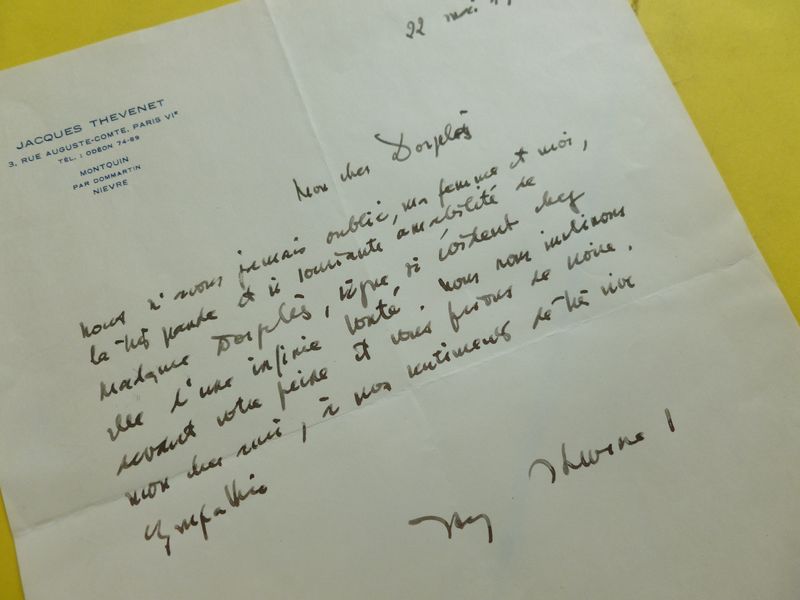 22 mai
JACQUES THEVENET
3, RUE AUGUSTE-COMTE, PARIS VIe
TÉL. : ODÉON 74-89
MONTQUIN
PAR DOMMARTIN
NIEVRE
Mon cher Dorplès
nous n'avons jamais oublié, ma femme et moi,
la très grande et si souriante amabilité de
Madame Dorplès, signe, si évident chez
elle d'une infinie bonté. Nous nous inclinons
devant votre peine et vous prions de croire,
mon cher ami, à nos sentiments de très vive
sympathie
Thevenet